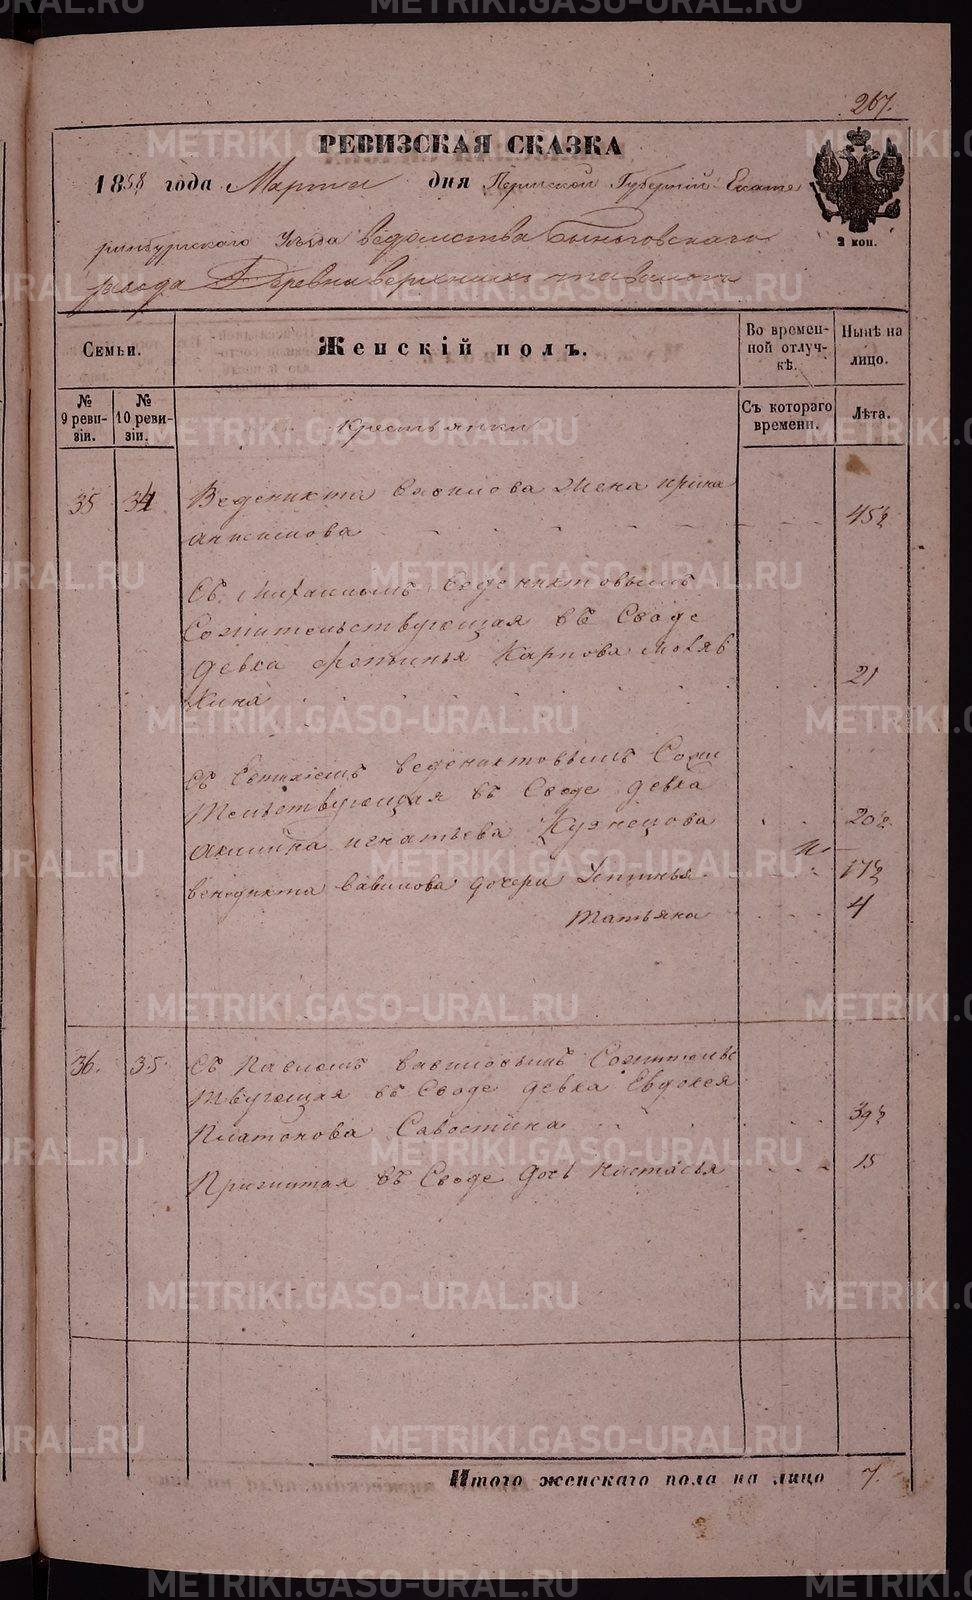 267.
РЕВИЗСКАЯ СКАЗКА
1858 года Марта дня Пермской Губерніи Екате
ринбургского Уезда ведомства Быньговскаго
завода Деревни верхнихъ
2 коп.
Семьи.
Женскій полъ.
Во времен-
ной отлуч-
кѣ.
Нынѣ на
лицо.
№
9 реви-
зіи.
№
10 реви-
зіи.
Съ котораго
времени.
Лѣта.
Крестьянки
35 34 Веденикта вавилова жена ирина
анисимова 45½
Съ Михаиломъ веденихтовымъ
Сожительствующая въ Сводѣ
девка фетинья Карпова
кина 21
Съ Евтихіемъ веденихтовымъ Сожи
тельствующая въ Сводѣ девка
акилина игнатьева Кузнецова 20½
венедикта вавилова дочери Устинья 17½
Татьяна 4
36. 35. Съ Павломъ вавиловымъ Сожительс
твующая въ Сводѣ девка Евдокея
Платонова Савостина 39½
Прижитая въ Сводѣ дочь настасья 15
Итого женскаго пола на лицо 7.
METRIKI.GASO-URAL.RU